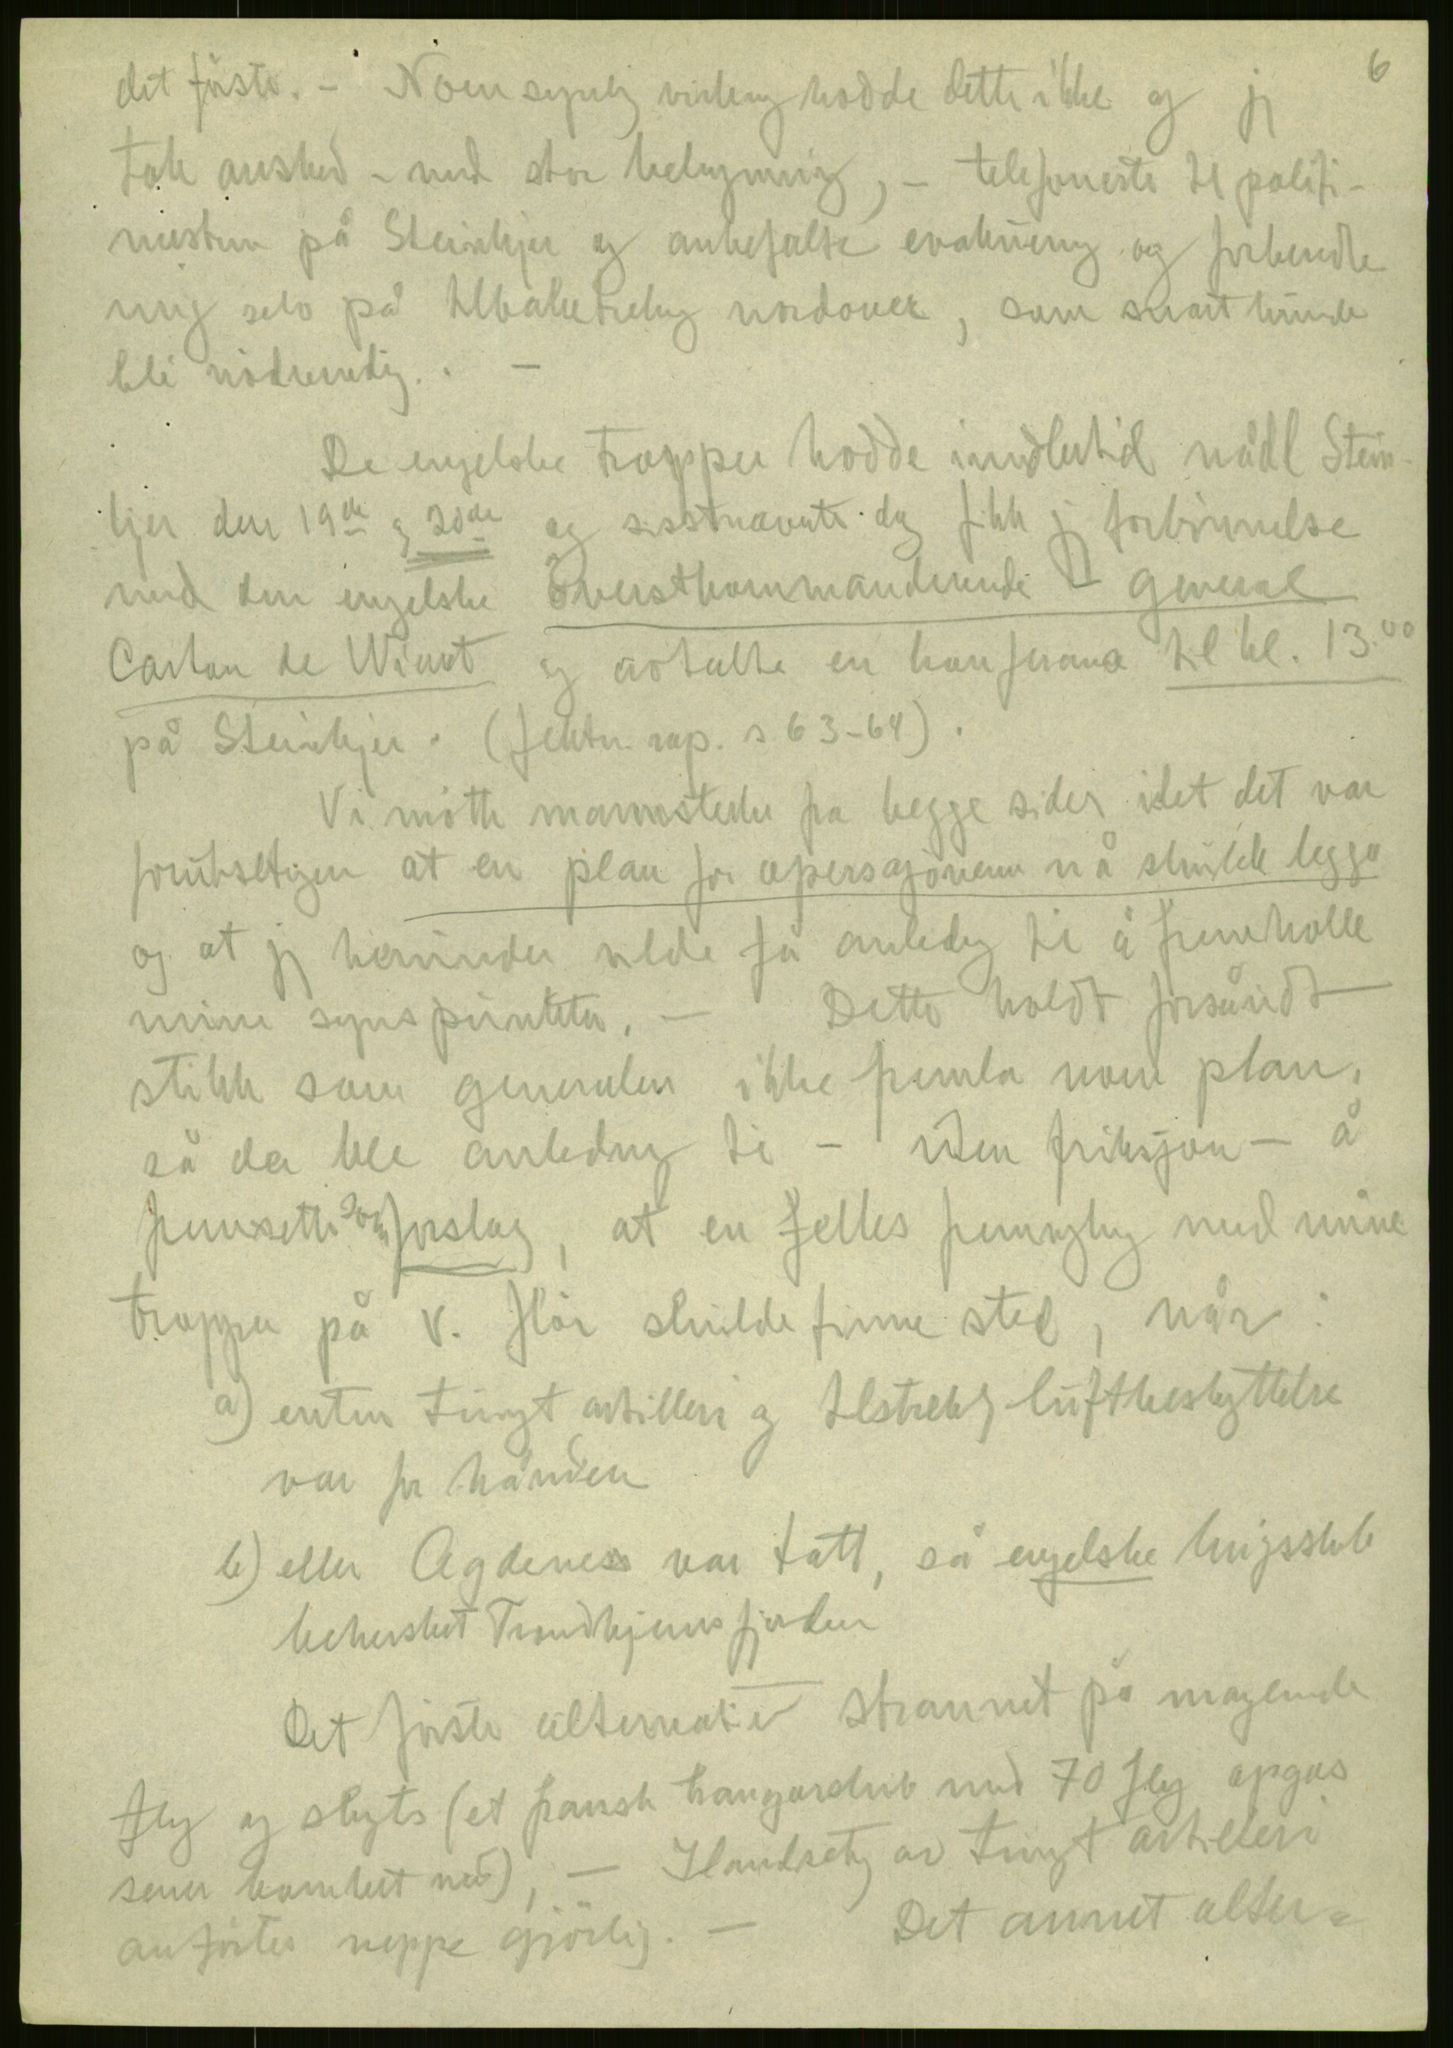 6
det første. - Noen synlig virkning hadde dette ikke og jeg
tok avsked - med stor bekymring, - telefonerte til politi-
mesteren på Steinkjer og anbefalte evakuering og forberedte
mig selv på tilbaketrekning nordover, som snart kunde
bli nødvendig. . -
De engelske tropper hadde imidlertid nådd Stein-
kjer den 19de og 20de og sisstnevnte dag fikk jeg forbinnelse
med den engelske øverstkommanderende - general
Carton de Wiart og avtalte en konferanse til kl. 13.00
på Steinkjer. (feltm. rap. s 63-64).
Vi møtte mannsterke fra begge sider idet det var
forutsetningen at en plan for operasjonene nå skulde legges
og at jeg herunder vilde få anledning til å fremholde
mine synspunkter. - Dette holdt forsåvidt
stikk som generalen ikke fremla noen plan,
så det ble anledning til - uten friksjon - å
fremsette som forslag, at en felles fremrykning med mine
tropper på v. fløi skulde finne sted, når :
a) enten tungt artilleri og tilstrekkelig luftbeskyttelse
var for hånden
b) eller Agdenes var tatt, så engelske krigsskib
behersket Trondhjemsfjorden
Det første alternativ strannet på manglende
fly og skyts (et fransk hangarskib med 70 fly opgas
senere bombet ned), - Ilandsetning av tungt artilleri
anførtes neppe gjørlig. - Det annet alter-